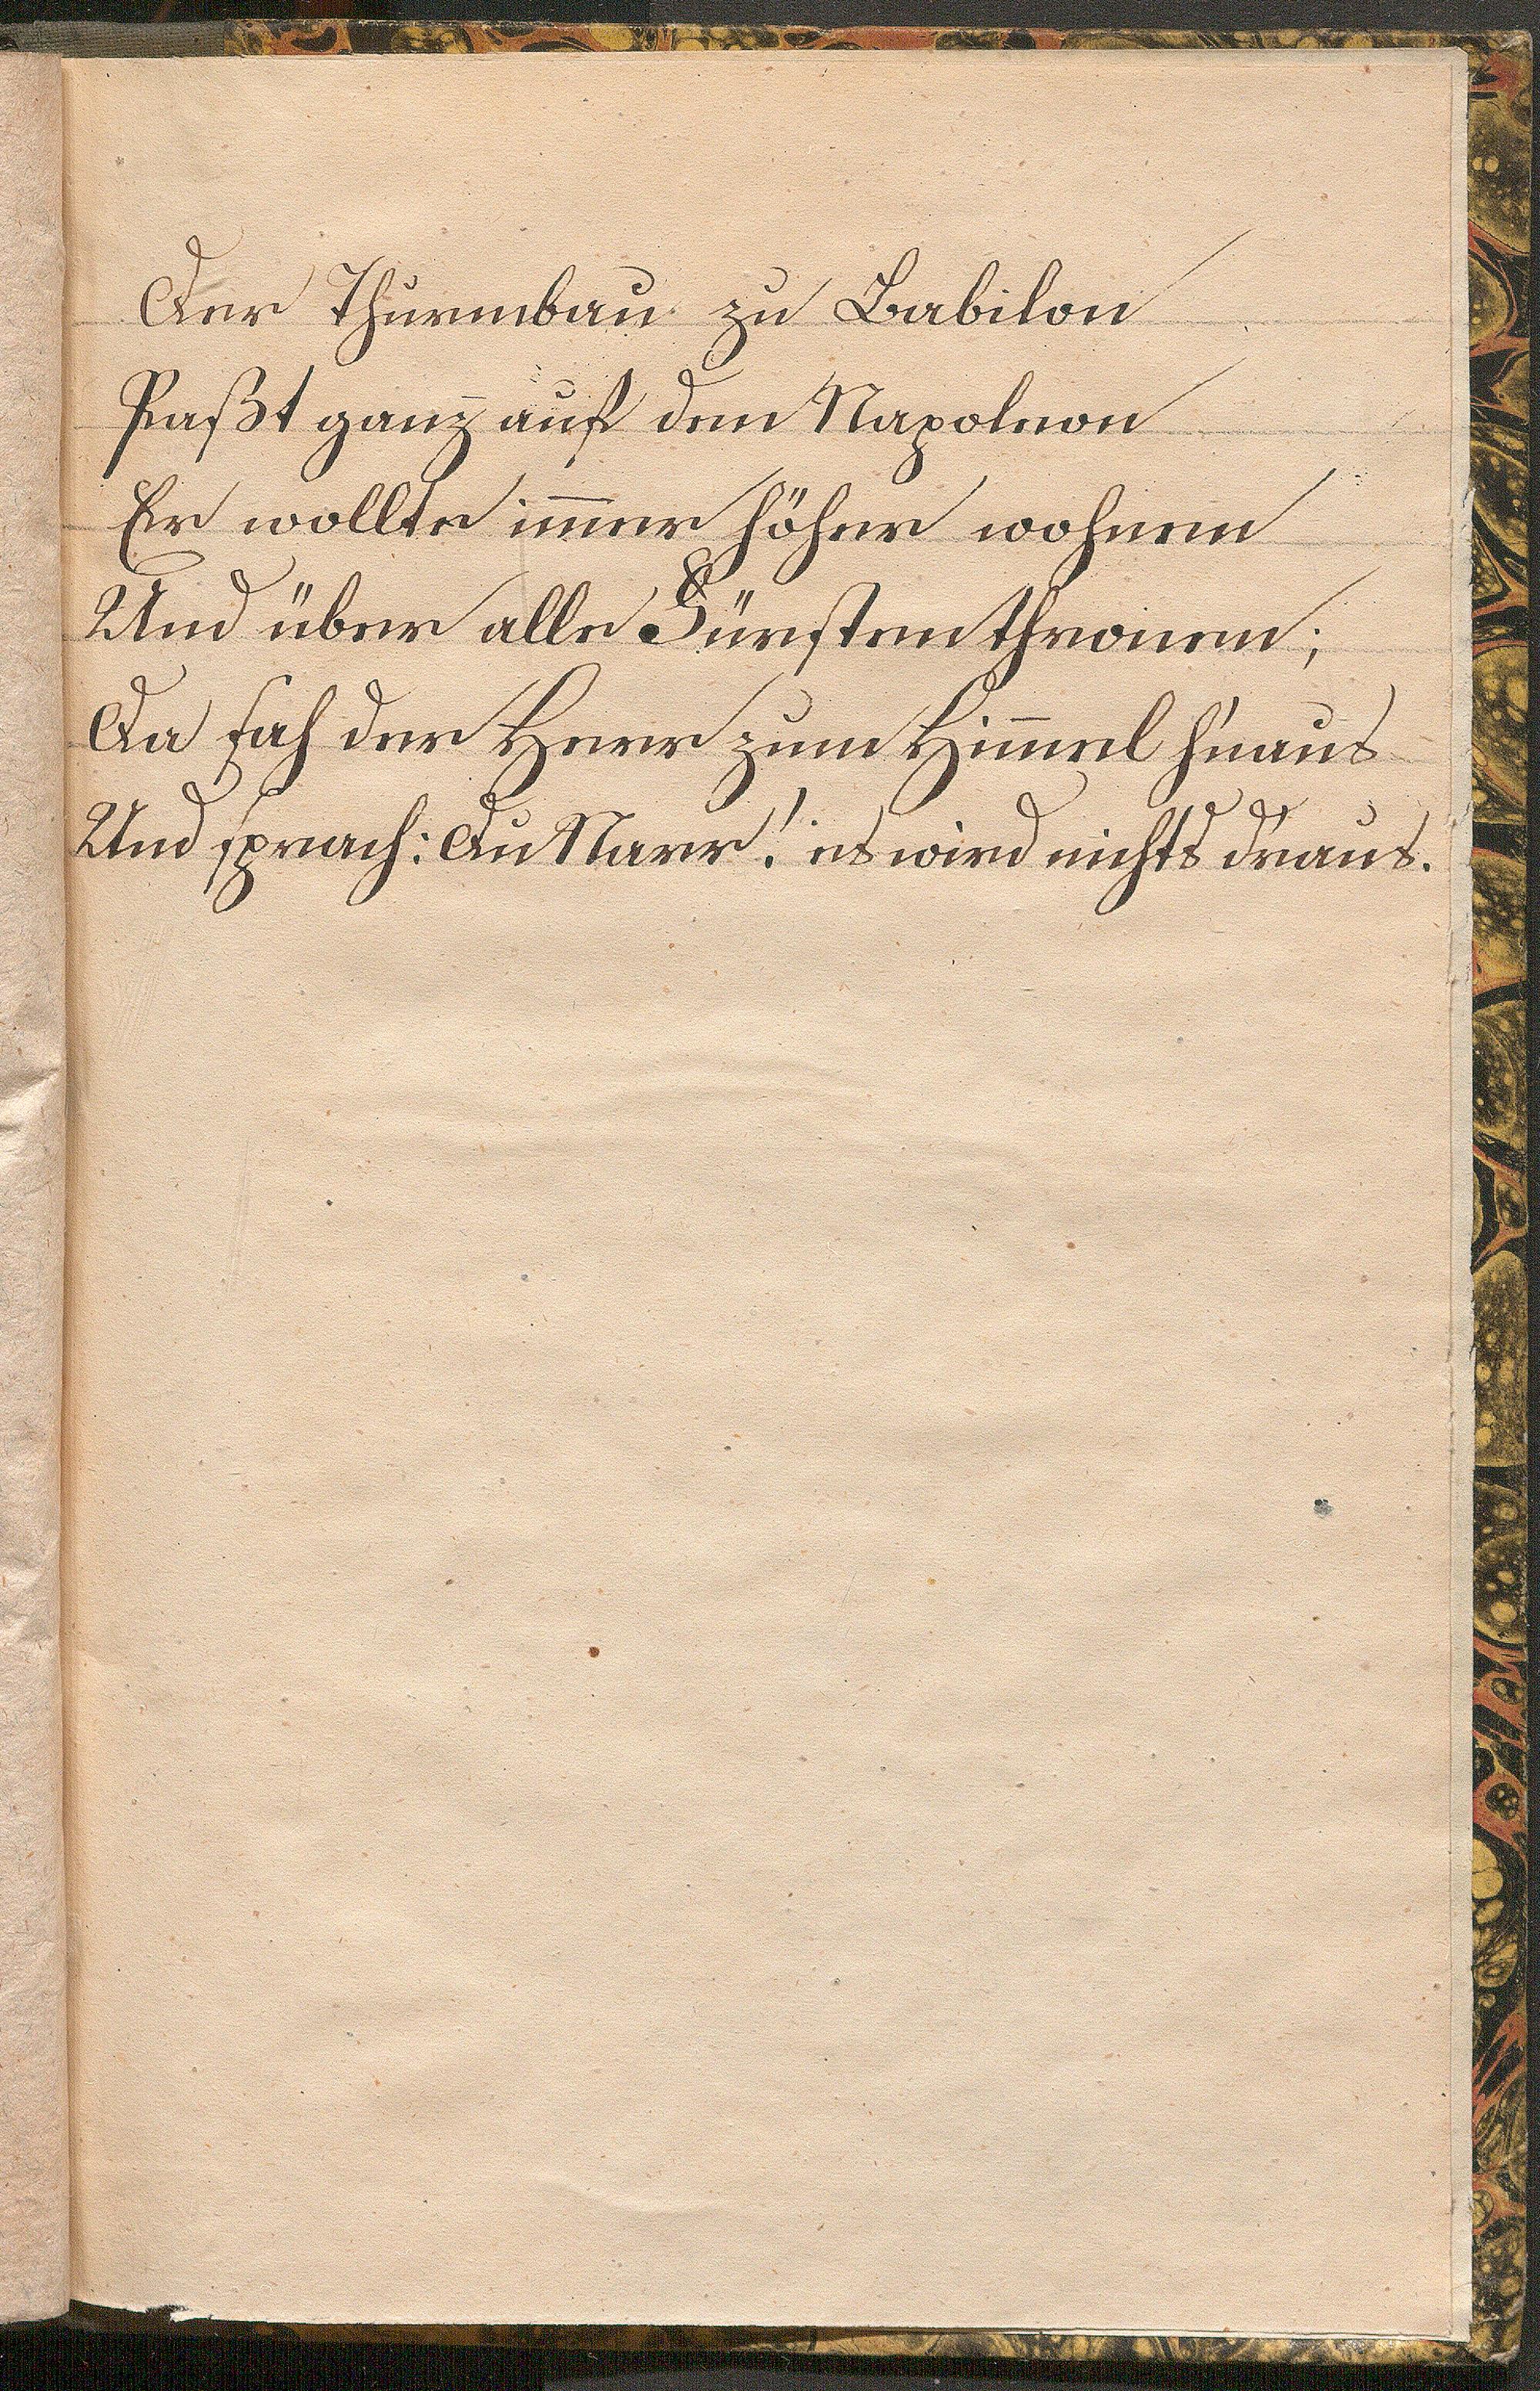 Der Thurmbau zu Babilon
Paßt ganz auf den Napoleon
Er wollte im̅er höher wohnen
Und über alle Fürsten thronen;
Da sah der Herr zum Him̅el h'naus
Und sprach: Du Narr! es wird nichts d'raus.